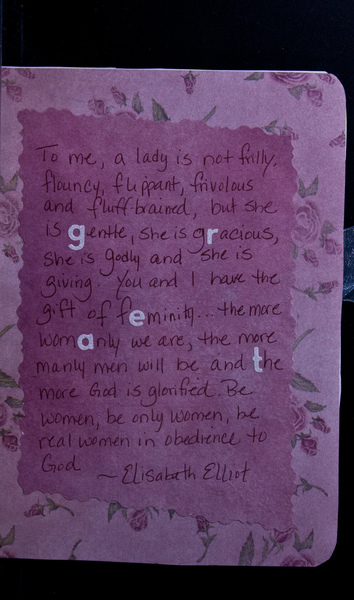 To me, a lady is not frilly,
flouncy, flippant, frivolous
and fluff-brained, but she
is gentle, she is gracious,
she is godly and she is
giving. You and I have the
gift of feminity... the more
womanly we are, the more
manly men will be and the
more God is glorified. Be
women, be only women, be
real women in obedience to
God
~ Elisabeth Elliot